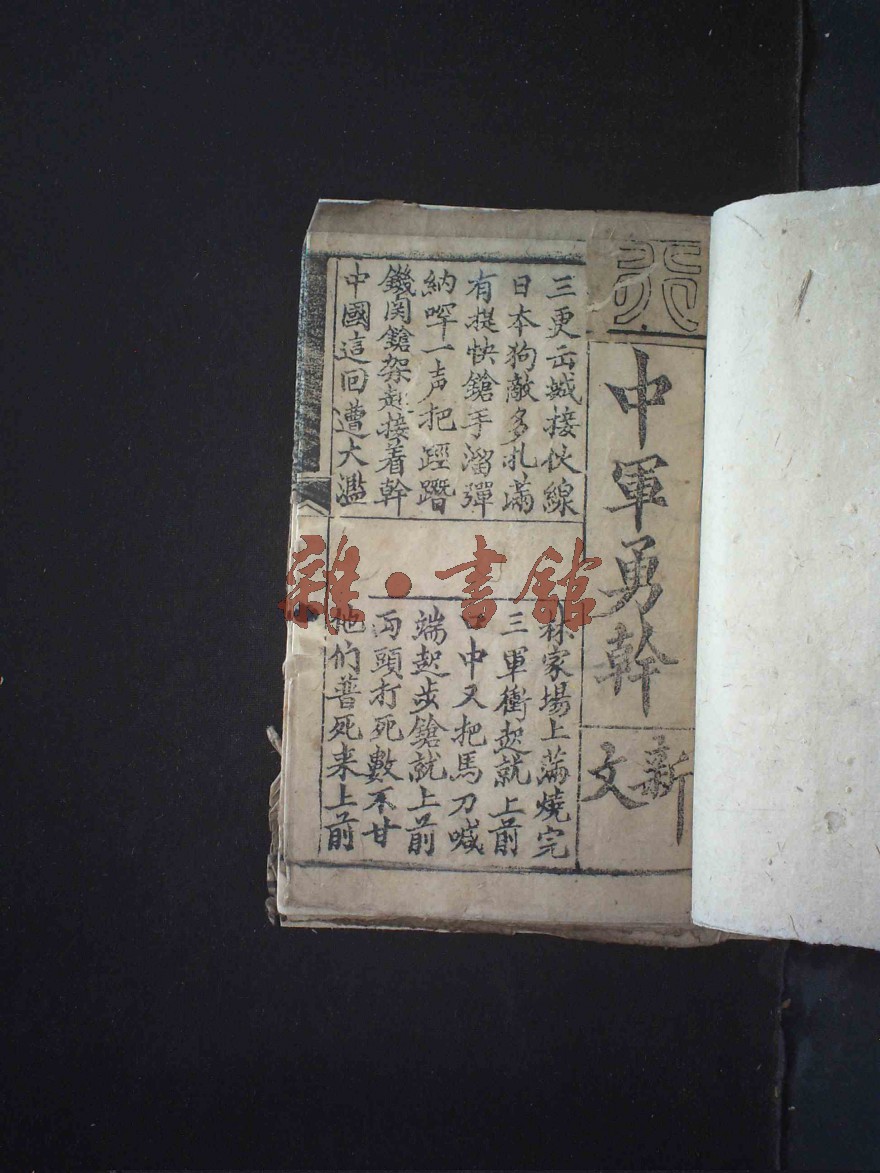 行
中軍勇幹
新文
三更出城接伙線
日本狗敵多扎滿
有提快鎗手溜彈
納哻一声把踁躤
鑯関鎗架起接着幹
中國這囘遭大濫
林家場上滿燒完
三軍衝起就上前
口中又把馬刀喊
端起步鎗就上前
両頭打死數不甘
他们普死来上前
雜·書館